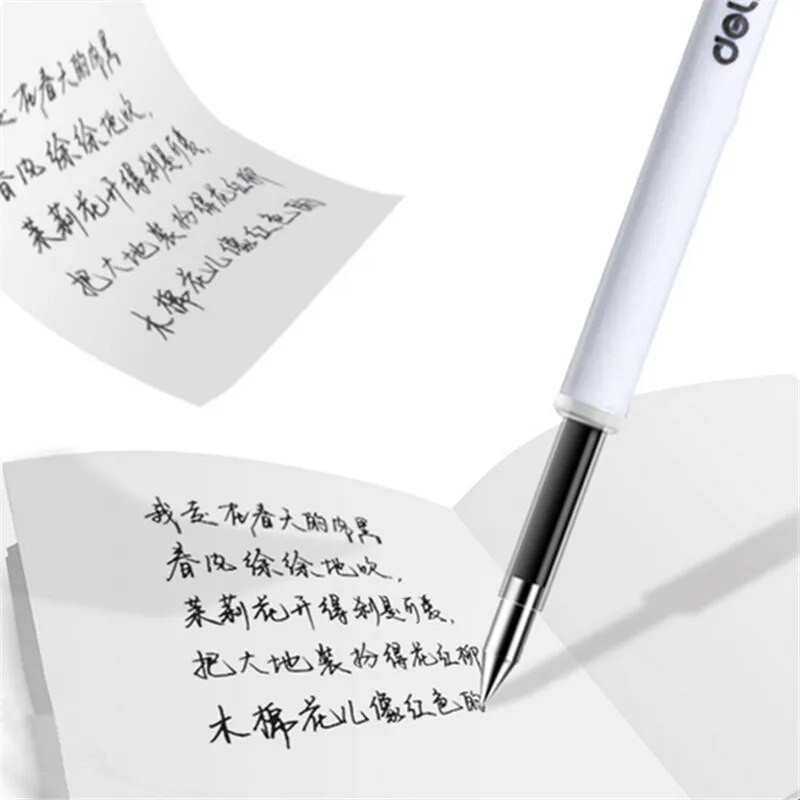 在春天的
春风徐徐地吹,
茉莉花开得刹是可爱,
把大地装扮得花红柳
木棉花儿像红色的
我走在春天的
春风徐徐地吹,
茉莉花开得刹是可爱,
把大地装扮得花红柳
木棉花儿像红色的